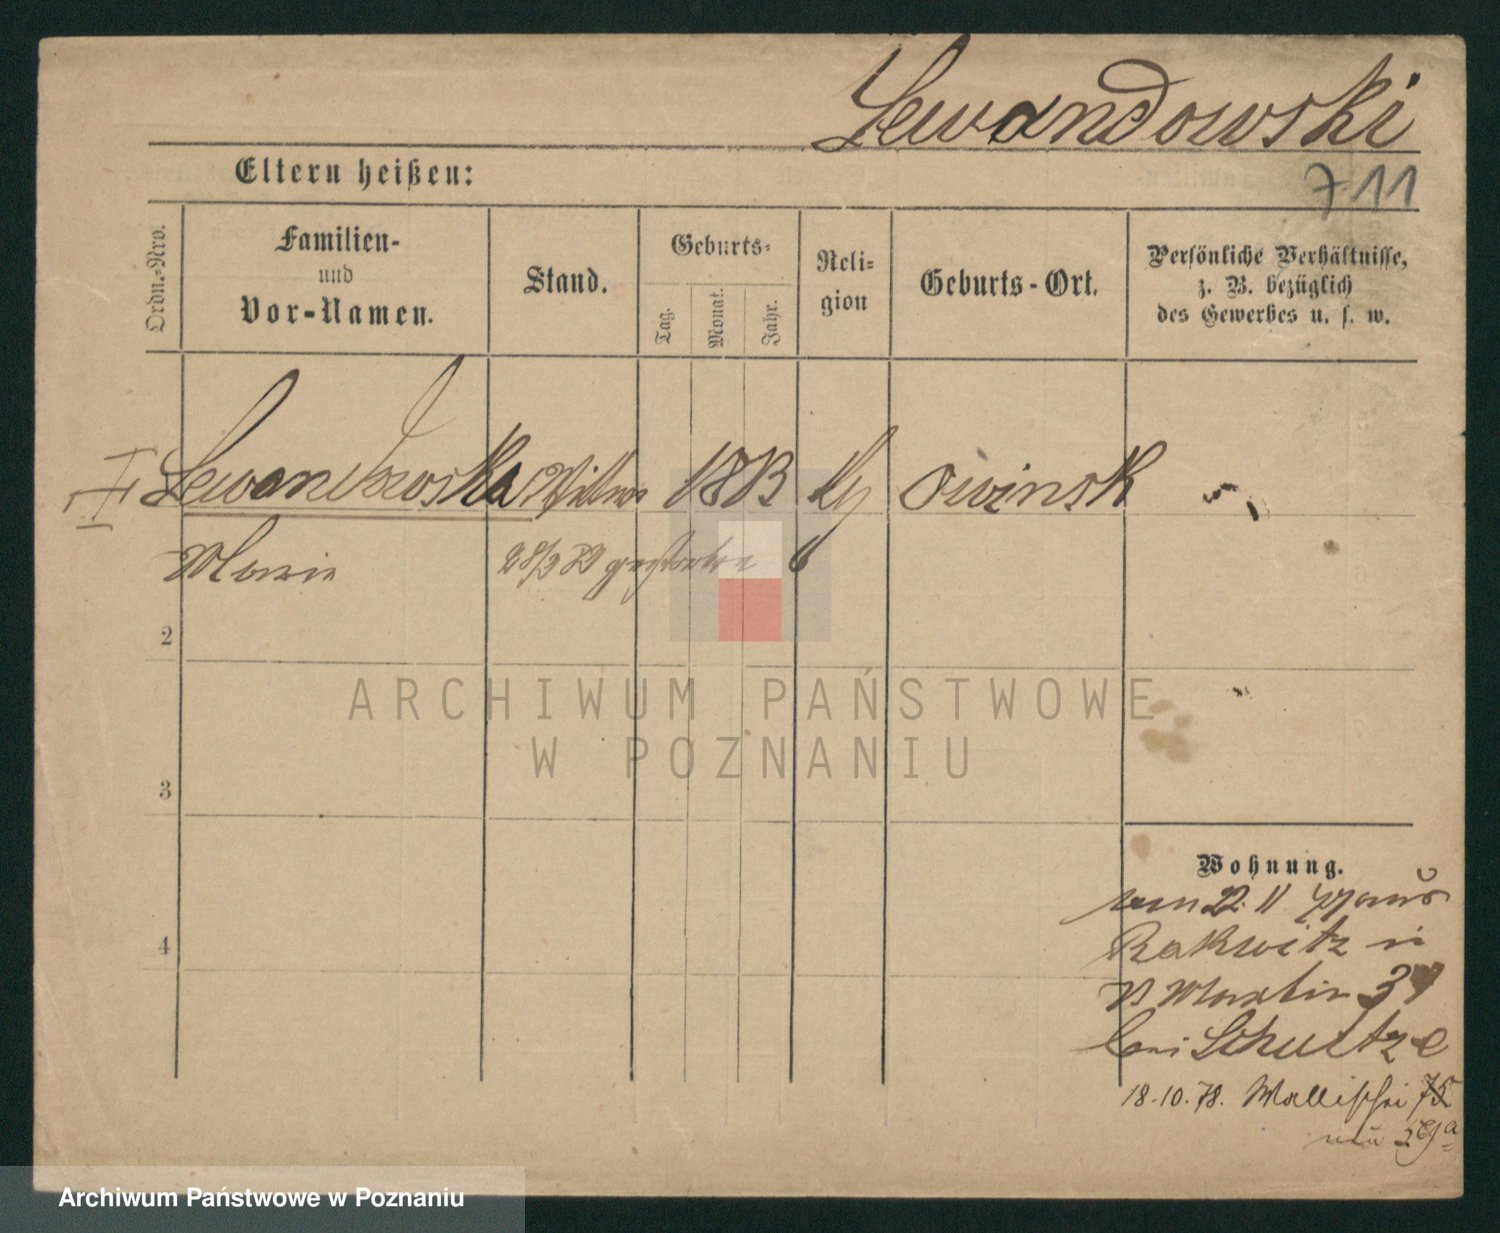 Lewandowski
711
Eltern heißen:
Ordn.-Nro.
Familien-
und
Vor-Namen.
Stand.
Geburts-
Tag.
Monat.
Jahr.
Reli-
gion
Geburts-Ort.
Persönliche Verhältnisse,
z. B. bezüglich
des Gewerbes u. s. w.
Lewandowska 1813 Owinsk
Marie gestorben
2
3
4
ARCHIWUM PAŃSTWOWE
W POZNANIU
Wohnung.
22. 11 aus
Rakwitz in
Martin
bei Schultze
18.10.78. Wallischei 75
neu
Archiwum Państwowe w Poznaniu